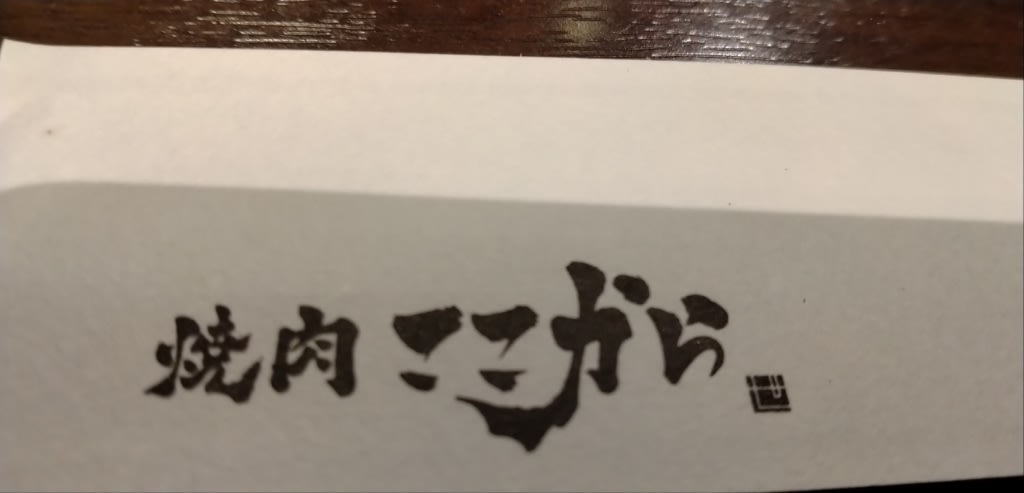 焼肉 ここから